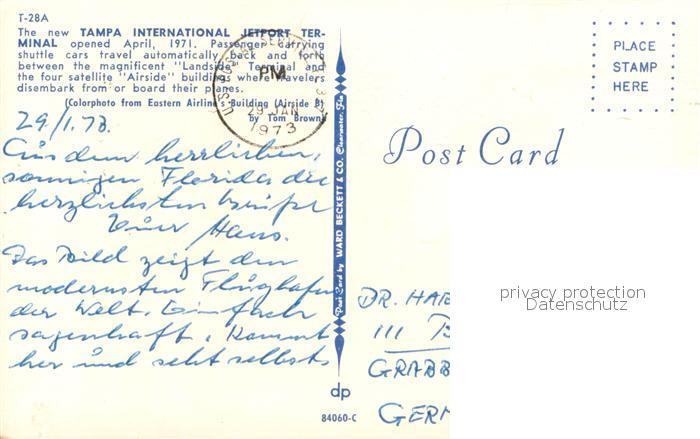 T-28A
The new TAMPA INTERNATIONAL JETPORT TER-
MINAL opened April, 1971. Passenger carrying
shuttle cars travel automatically back and forth
between the magnificent "Landside" Terminal and
the four satellite "Airside" buildings where travelers
disembark from or board their planes.
(Colorphoto from Eastern Airline's Building (Airside B)
by Tom Brown)
PM
29 JAN
1973
29/1.73.
Aus dem herrlichen,
sonnigen Florida die
herzlichsten Grüße
Euer Hans.
Das Bild zeigt den
modernsten Flughafen
der Welt. Einfach
sagenhaft. Kommt
her und seht selbst
Post Card by WARD BECKETT & CO. Clearwater, Fla.
dp
84060-C
PLACE
STAMP
HERE
Post Card
DR. HAB
111 B
GRABB
GERM
privacy protection
Datenschutz